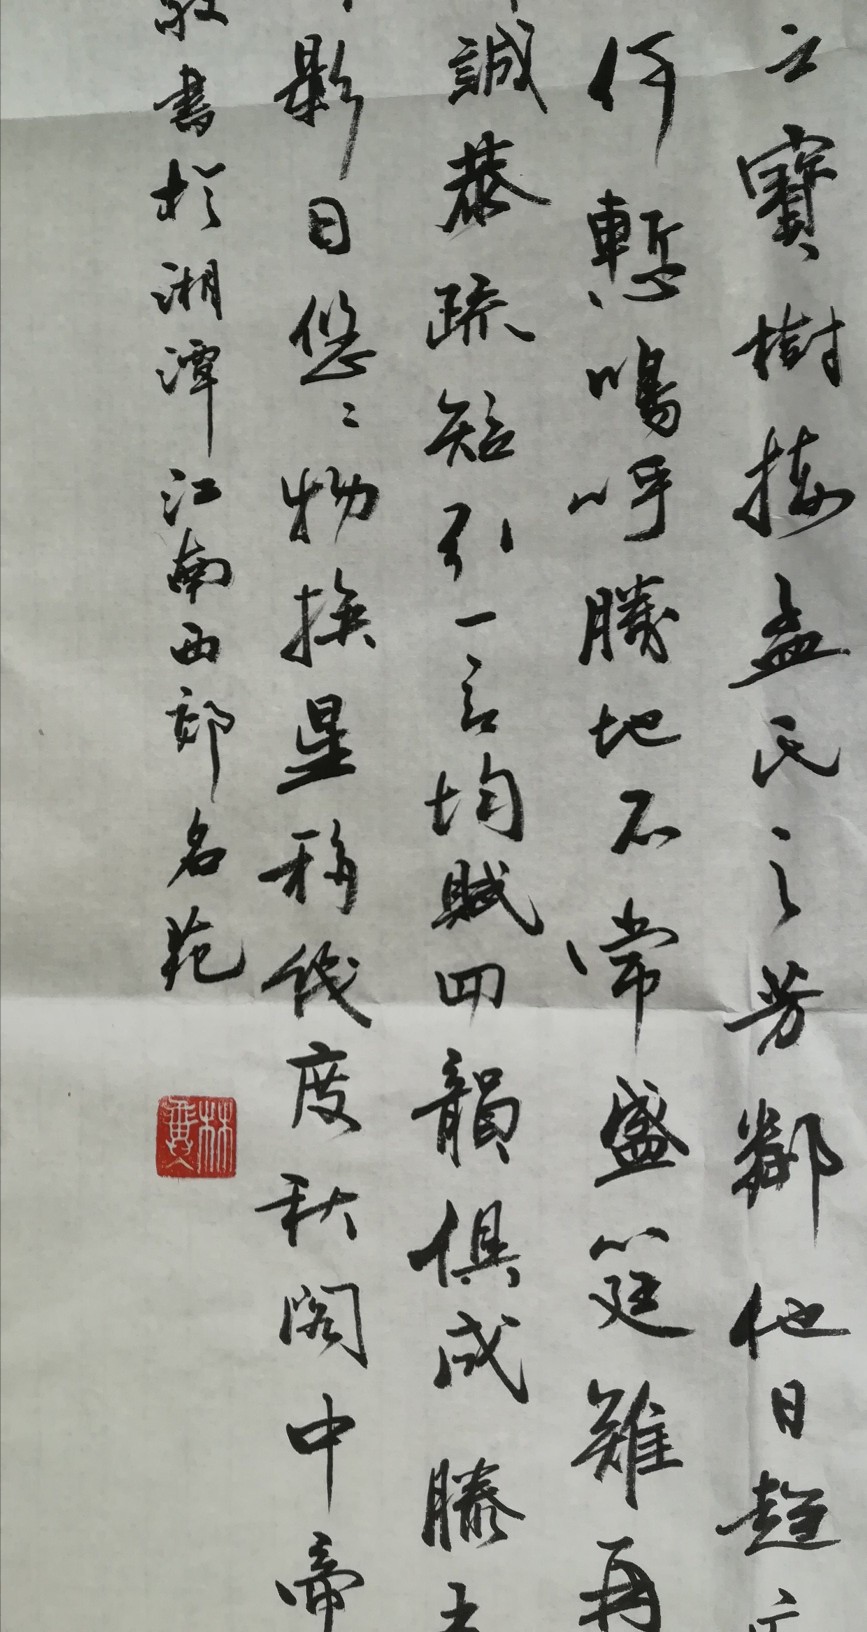 之寶樹接孟氏之芳鄰他日趨
何慙鳴呼勝地不常盛筵難再
誠恭疏短引一言均賦四韻俱成滕王
影日悠〻物換星移幾度秋閣中帝
敬書於湘潭江南西郡名苑
林